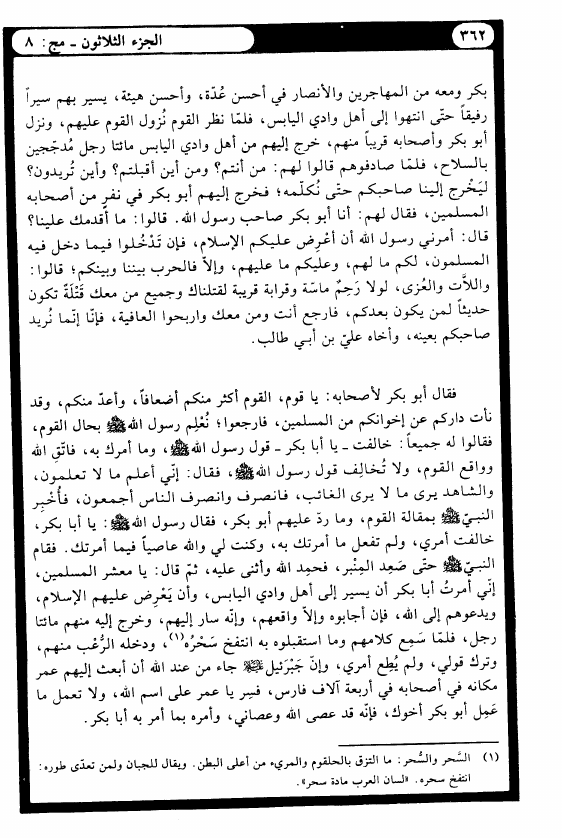 ٣٦٢
الجزء الثلاثون ـ مج: ٨
بكر ومعه من المهاجرين والأنصار في أحسن عُدّة، وأحسن هيئة، يسير بهم سيراً
رفيقاً حتّى انتهوا إلى أهل وادي اليابس، فلمّا نظر القوم نُزول القوم عليهم، ونزل
أبو بكر وأصحابه قريباً منهم، خرج إليهم من أهل وادي اليابس مائتا رجل مُدجّجين
بالسلاح، فلمّا صادفوهم قالوا لهم: من أنتم؟ ومن أين أقبلتم؟ وأين تُريدون؟
ليَخْرج إلينا صاحبكم حتّى نُكلّمه؛ فخرج إليهم أبو بكر في نفرٍ من أصحابه
المسلمين، فقال لهم: أنا أبو بكر صاحب رسول الله. قالوا: ما أقدمك علينا؟
قال: أمرني رسول الله أن أعْرِض عليكم الإسلام، فإن تَدْخُلوا فيما دخل فيه
المسلمون، لكم ما لهم، وعليكم ما عليهم، وإلاّ فالحرب بيننا وبينكم؛ قالوا:
واللاَّت والعُزى، لولا رَحِمٌ ماسّة وقرابة قريبة لقتلناك وجميع من معك قَتْلَةً تكون
حديثاً لمن يكون بعدكم، فارجع أنت ومن معك واربحوا العافية، فإنّا إنّما نُريد
صاحبكم بعينه، وأخاه عليّ بن أبي طالب.
فقال أبو بكر لأصحابه: يا قوم، القوم أكثر منكم أضعافاً، وأعدّ منكم، وقد
نأت داركم عن إخوانكم من المسلمين، فارجعوا؛ نُعْلِم رسول الله ﷺ بحال القوم،
فقالوا له جميعاً: خالفت ـ يا أبا بكر ـ قول رسول الله ﷺ، وما أمرك به، فاتّقِ الله
وواقع القوم، ولا تُخالِف قول رسول الله ﷺ، فقال: إنّي أعلم ما لا تعلمون،
والشاهد يرى ما لا يرى الغائب، فانصرف وانصرف الناس أجمعون، فأُخْبِر
النبيّ ﷺ بمقالة القوم، وما ردّ عليهم أبو بكر، فقال رسول الله ﷺ: يا أبا بكر،
خالفت أمري، ولم تفعل ما أمرتك به، وكنت لي والله عاصياً فيما أمرتك. فقام
النبيّ ﷺ حتّى صَعِد المِنْبر، فحمِد الله وأثنى عليه، ثمّ قال: يا معشر المسلمين،
إنّي أمرتُ أبا بكر أن يسير إلى أهل وادي اليابس، وأن يَعْرِض عليهم الإسلام،
ويدعوهم إلى الله، فإن أجابوه وإلاّ واقعهم، وإنّه سار إليهم، وخرج إليه منهم مائتا
رجل، فلمّا سَمِع كلامهم وما استقبلوه به انتفخ سَحْرُه(١)، ودخله الرُّعْب منهم،
وترك قولي، ولم يُطِع أمري، وإنّ جَبْرَئيل ﷺ جاء من عند الله أن أبعث إليهم عمر
مكانه في أصحابه في أربعة آلاف فارس، فسِر يا عمر على اسم الله، ولا تعمل ما
عَمِل أبو بكر أخوك، فإنّه قد عصى الله وعصاني، وأمره بما أمر به أبا بكر.
(١) السَّحر والسُّحر: ما التزق بالحلقوم والمريء من أعلى البطن. ويقال للجبان ولمن تعدّى طوره:
انتفخ سحره. «لسان العرب مادة سحر».